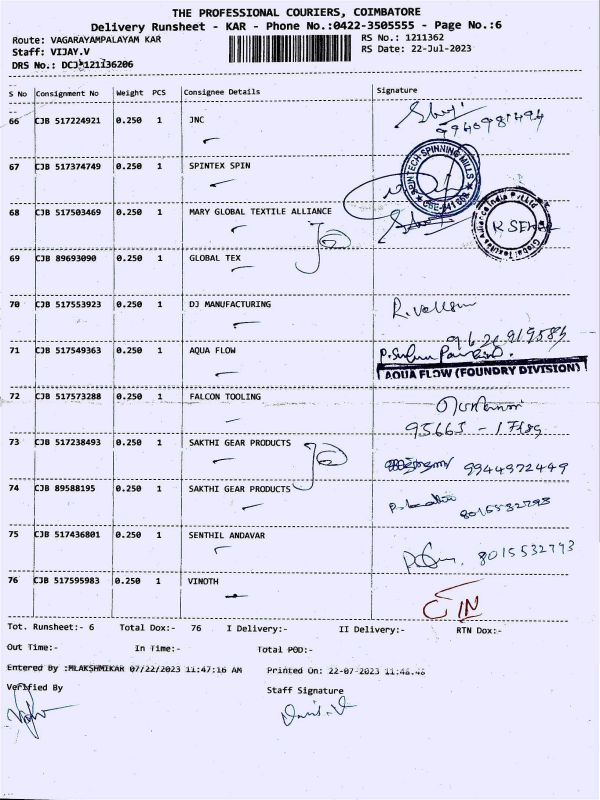 THE PROFESSIONAL COURIERS, COIMBATORE
Delivery Runsheet - KAR - Phone No.:0422-3505555 - Page No.:6
Route: VAGARAYAMPALAYAM KAR
RS No.: 1211362
Staff: VIJAY.V
RS Date: 22-Jul-2023
DRS No.: DCJ 121136206
S No Consignment No Weight PCS Consignee Details Signature
66 CJB 517224921 0.250 1 JNC
67 CJB 517374749 0.250 1 SPINTEX SPIN
SPINTECH SPINNING MILLS
68 CJB 517503469 0.250 1 MARY GLOBAL TEXTILE ALLIANCE
69 CJB 89693090 0.250 1 GLOBAL TEX
70 CJB 517553923 0.250 1 DJ MANUFACTURING
71 CJB 517549363 0.250 1 AQUA FLOW
AQUA FLOW (FOUNDRY DIVISION)
72 CJB 517573288 0.250 1 FALCON TOOLING
73 CJB 517238493 0.250 1 SAKTHI GEAR PRODUCTS 9944972449
74 CJB 89588195 0.250 1 SAKTHI GEAR PRODUCTS 8015532793
75 CJB 517436801 0.250 1 SENTHIL ANDAVAR 8015532793
76 CJB 517595983 0.250 1 VINOTH
Tot. Runsheet:- 6 Total Dox:- 76 I Delivery:- II Delivery:- RTN Dox:-
Out Time:- In Time:- Total POD:-
Entered By :MLAKSHMIKAR 07/22/2023 11:47:16 AM Printed On: 22-07-2023 11:48:48
Verified By
Staff Signature